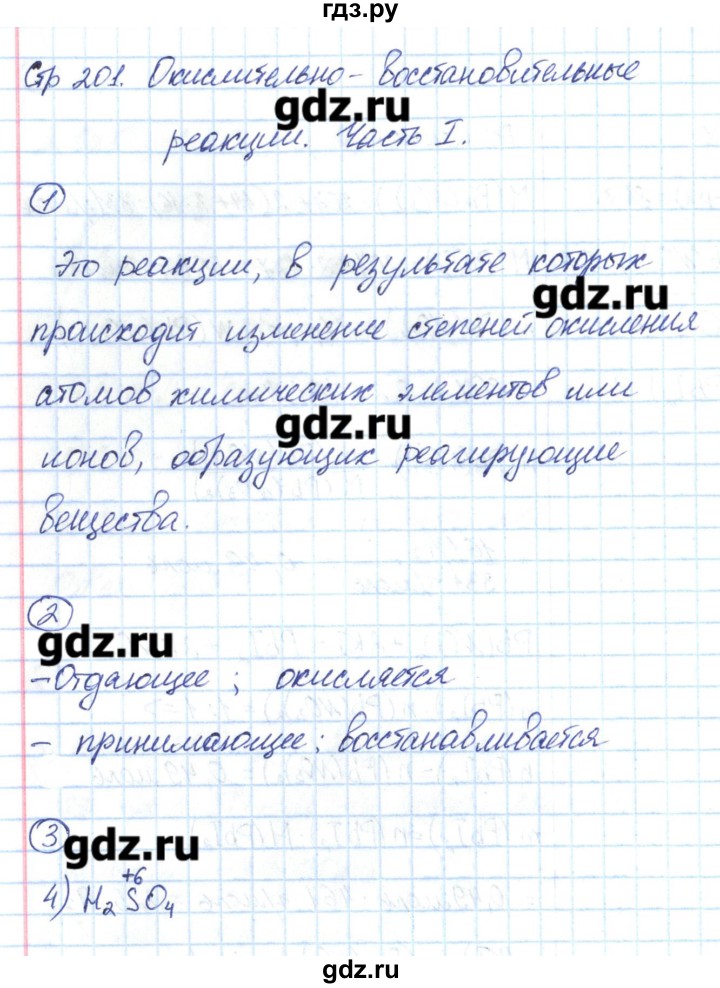 гдз.ру
Стр 201. Окислительно-восстановительные
gdz.ru
реакции. Часть I.
1
Это реакции, в результате которых
gdz.ru
происходит изменение степеней окисления
атомов химических элементов или
gdz.ru
ионов, образующих реагирующие
вещества.
2
gdz.ru
- Отдающее; окисляется
- принимающее; восстанавливается
3
gdz.ru
+6
4) H₂SO₄
gdz.ru